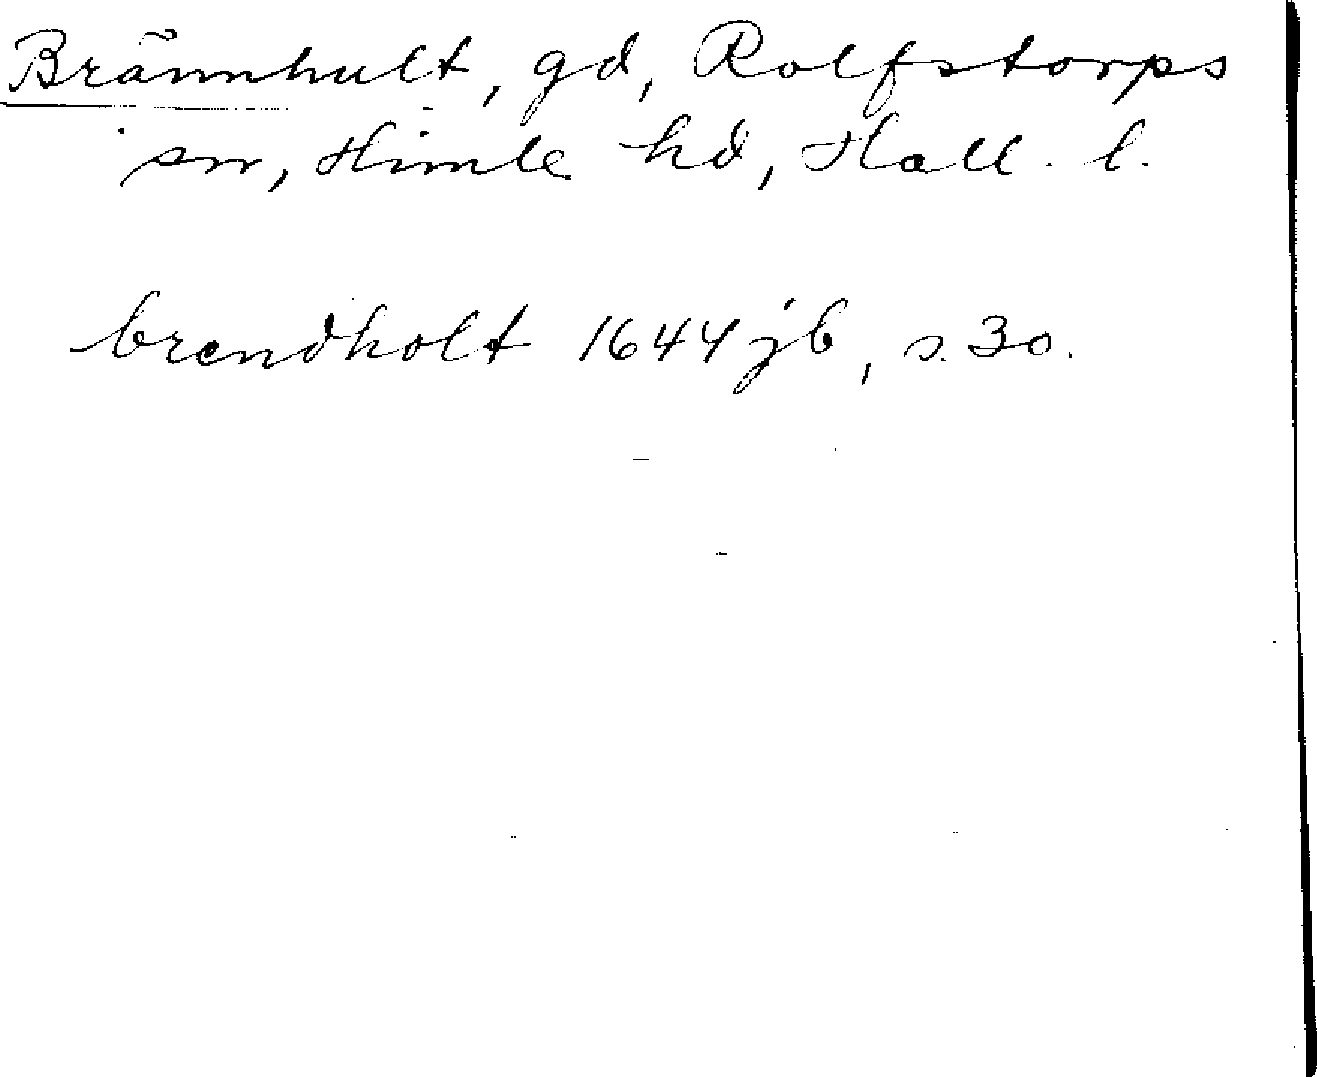 Brännhult, gd, Rolfstorps
sn, Himle hd, Hall. l.
brendholt 1644 jb, s. 30.